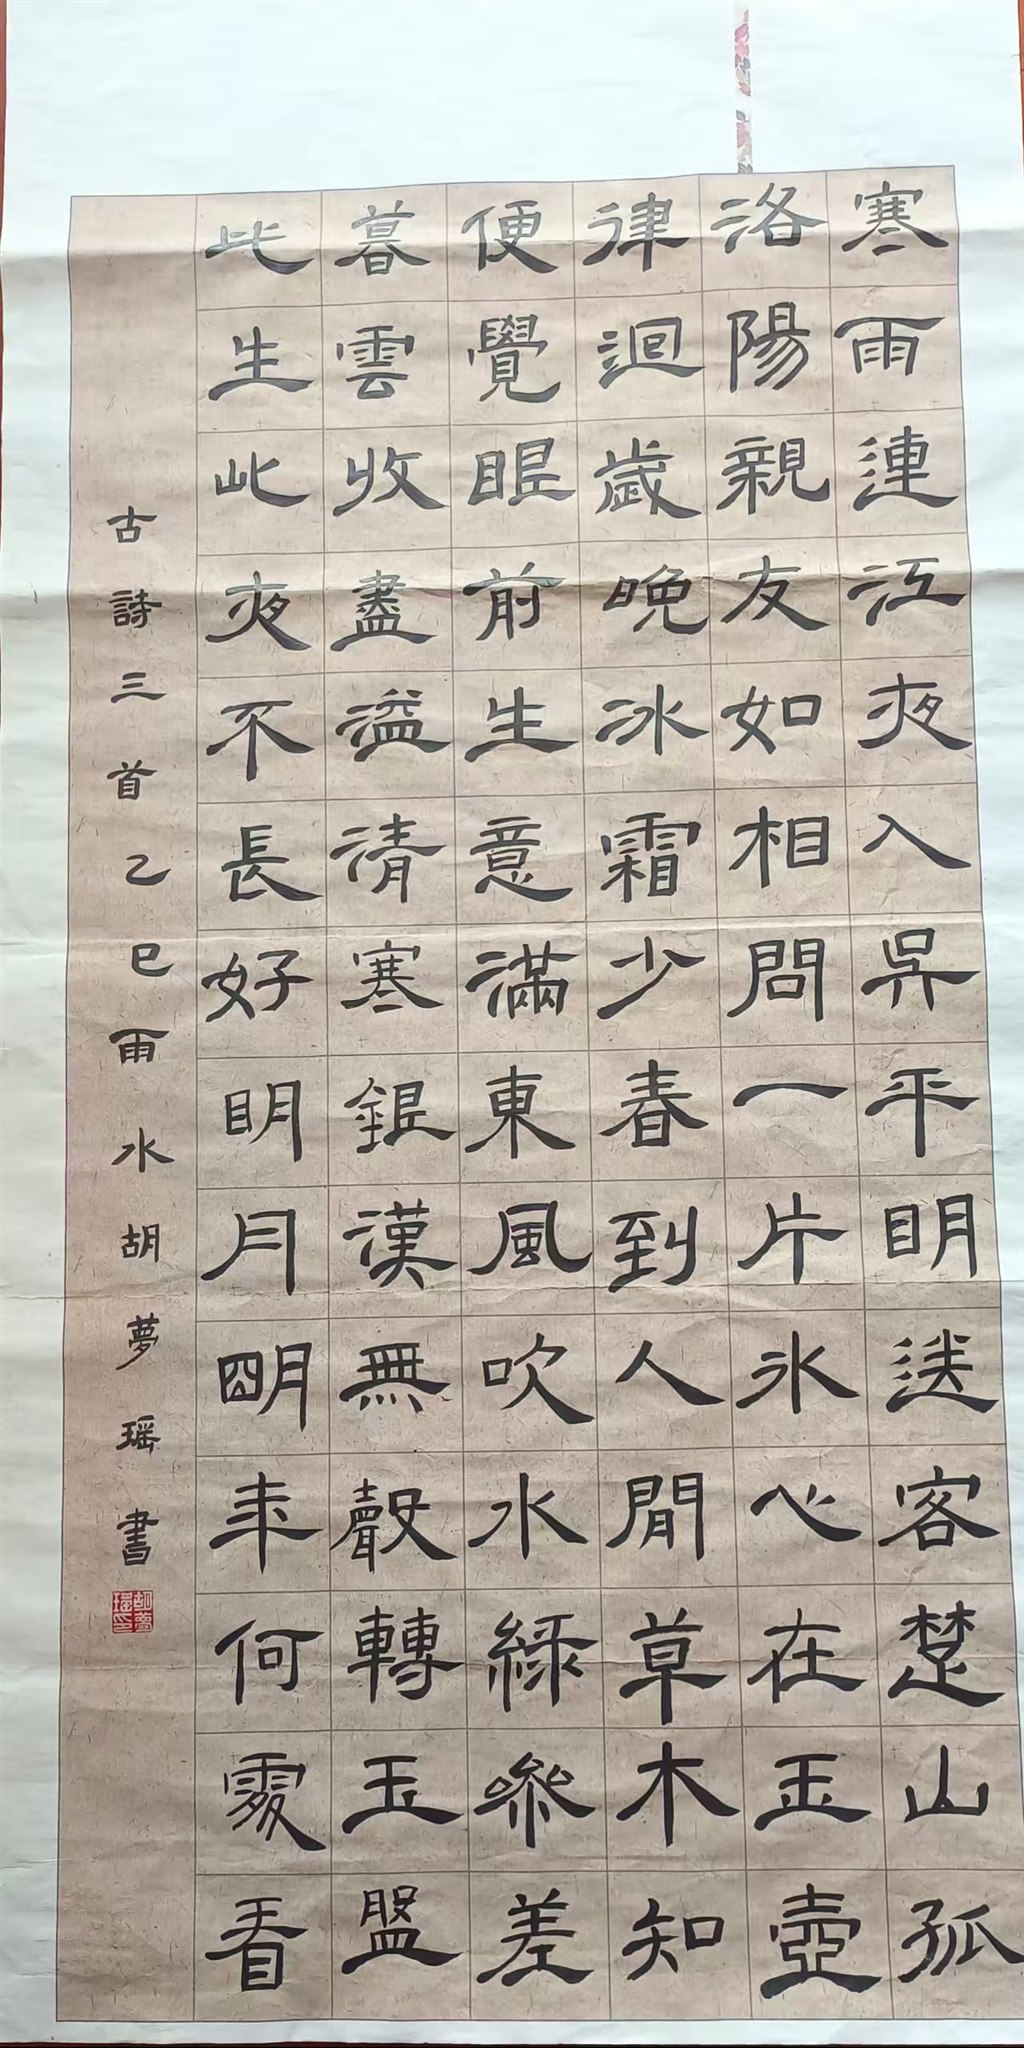 寒雨連江夜入吳平明送客楚山孤
洛陽親友如相問一片冰心在玉壺
律迴歲晚冰霜少春到人間草木知
便覺眼前生意滿東風吹水綠參差
暮雲收盡溢清寒銀漢無聲轉玉盤
此生此夜不長好明月明年何處看
古詩三首乙巳雨水胡夢瑶書